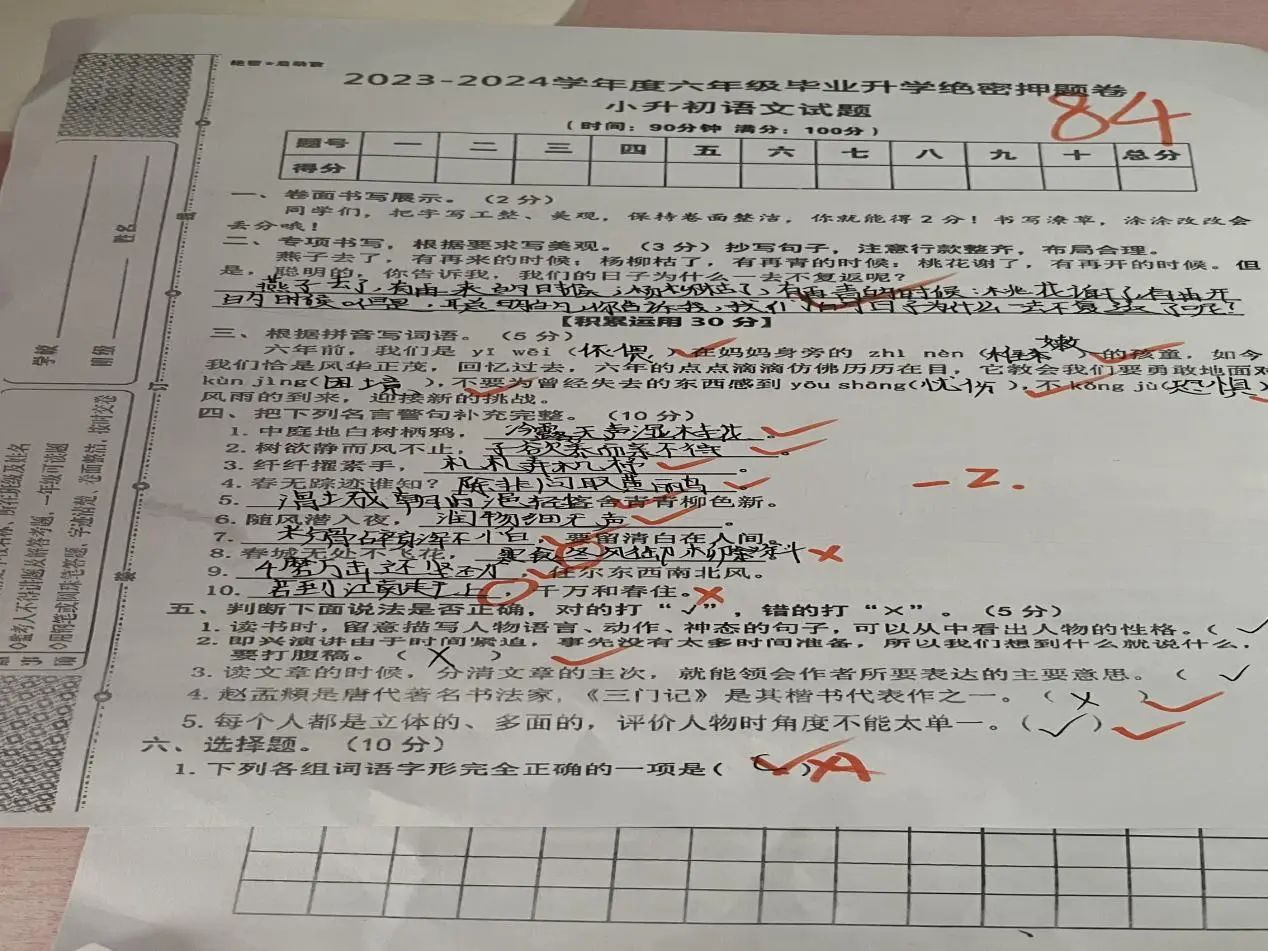 绝密★启动前
2023-2024学年度六年级毕业升学绝密押题卷
84
小升初语文试题
(时间:90分钟 满分:100分)
题号 一 二 三 四 五 六 七 八 九 十 总分
得分
一、卷面书写展示。(2分)
同学们,把字写工整、美观,保持卷面整洁,你就能得2分!书写潦草,涂涂改改会
丢分哦!
二、专项书写,根据要求写美观。(3分)抄写句子,注意行款整齐,布局合理。
燕子去了,有再来的时候;杨柳枯了,有再青的时候;桃花谢了,有再开的时候。但
是,聪明的,你告诉我,我们的日子为什么一去不复返呢?
燕子去了,有再来的时候;杨柳枯了,有再青的时候;桃花谢了有再开
的时候。但是,聪明的,你告诉我,我们的日子为什么一去不复返了呢!
【积累运用30分】
三、根据拼音写词语。(5分)
六年前,我们是 yī wēi(依偎)在妈妈身旁的 zhì nèn(稚嫩)的孩童,如今
我们恰是风华正茂,回忆过去,六年的点点滴滴仿佛历历在目,它教会我们要勇敢地面对
kùn jìng(困境),不要为曾经失去的东西感到 yōu shāng(忧伤),不 kǒng jù(恐惧)
风雨的到来,迎接新的挑战。
四、把下列名言警句补充完整。(10分)
1. 中庭地白树栖鸦,冷露无声湿桂花。
2. 树欲静而风不止,子欲养而亲不待。
3. 纤纤擢素手,札札弄机杼。
4. 春无踪迹谁知?除非问取黄鹂。
-2.
5. 渭城朝雨浥轻尘客舍青青柳色新。
6. 随风潜入夜,润物细无声。
7. 粉骨碎身浑不怕,要留清白在人间。
8. 春城无处不飞花,寒食东风御柳斜
9. 千磨万击还坚劲,任尔东西南北风。
10. 若到江南赶上,千万和春住。
五、判断下面说法是否正确,对的打“√”,错的打“×”。(5分)
1. 读书时,留意描写人物语言、动作、神态的句子,可以从中看出人物的性格。(√
2. 即兴演讲由于时间紧迫,事先没有太多时间准备,所以我们想到什么就说什么,
要打腹稿。(×)
3. 读文章的时候,分清文章的主次,就能领会作者所要表达的主要意思。(√
4. 赵孟頫是唐代著名书法家,《三门记》是其楷书代表作之一。(×)
5. 每个人都是立体的、多面的,评价人物时角度不能太单一。(√)
六、选择题。(10分)
1. 下列各组词语字形完全正确的一项是( C )A
学校
班级
姓名